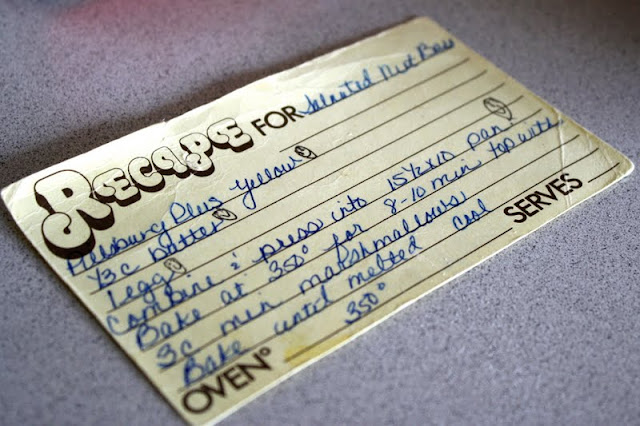 RECIPE FOR Salted Nut Bars
Pillsbury Plus yellow
1/3 c butter
1 egg
Combine & press into 15 1/2 x 10 pan
Bake at 350° for 8-10 min top with
3 c min marshmallows
Bake until melted cool
OVEN° 350° SERVES